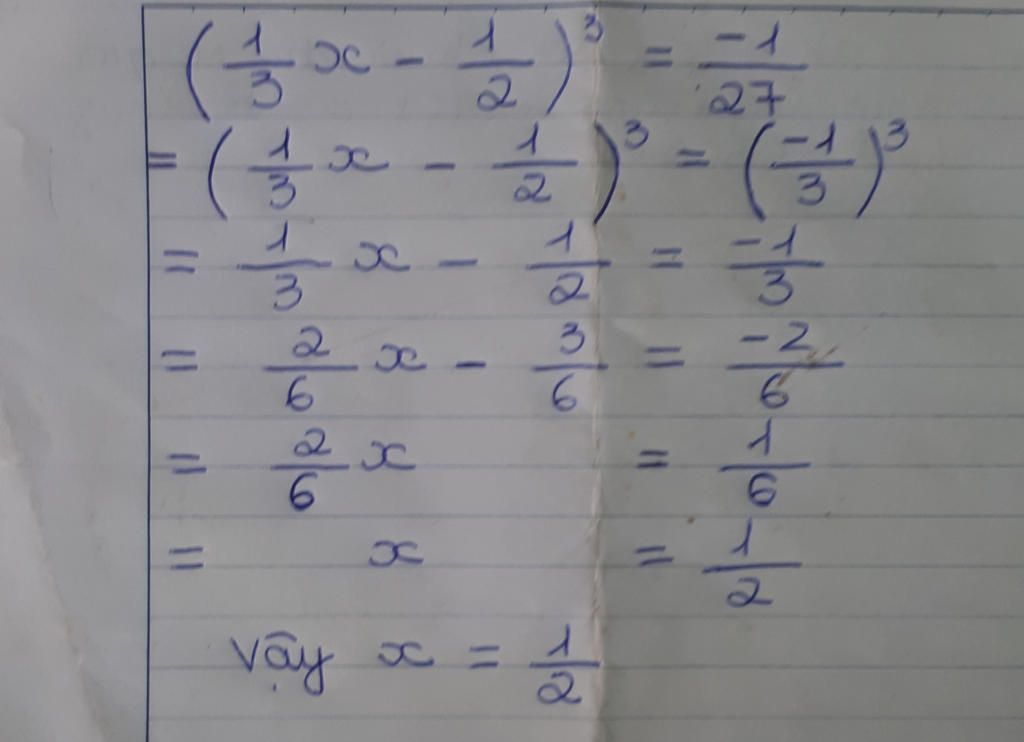 (1/3 x - 1/2)³ = -1/27
= (1/3 x - 1/2)³ = (-1/3)³
= 1/3 x - 1/2 = -1/3
= 2/6 x - 3/6 = -2/6
= 2/6 x = 1/6
= x = 1/2
Vậy x = 1/2